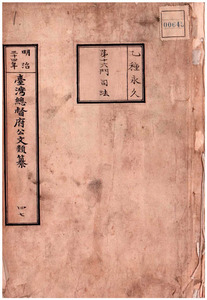 1.
乙種永久
第十六門 司法
明治
三十四年
臺灣總督府公文類纂
四七